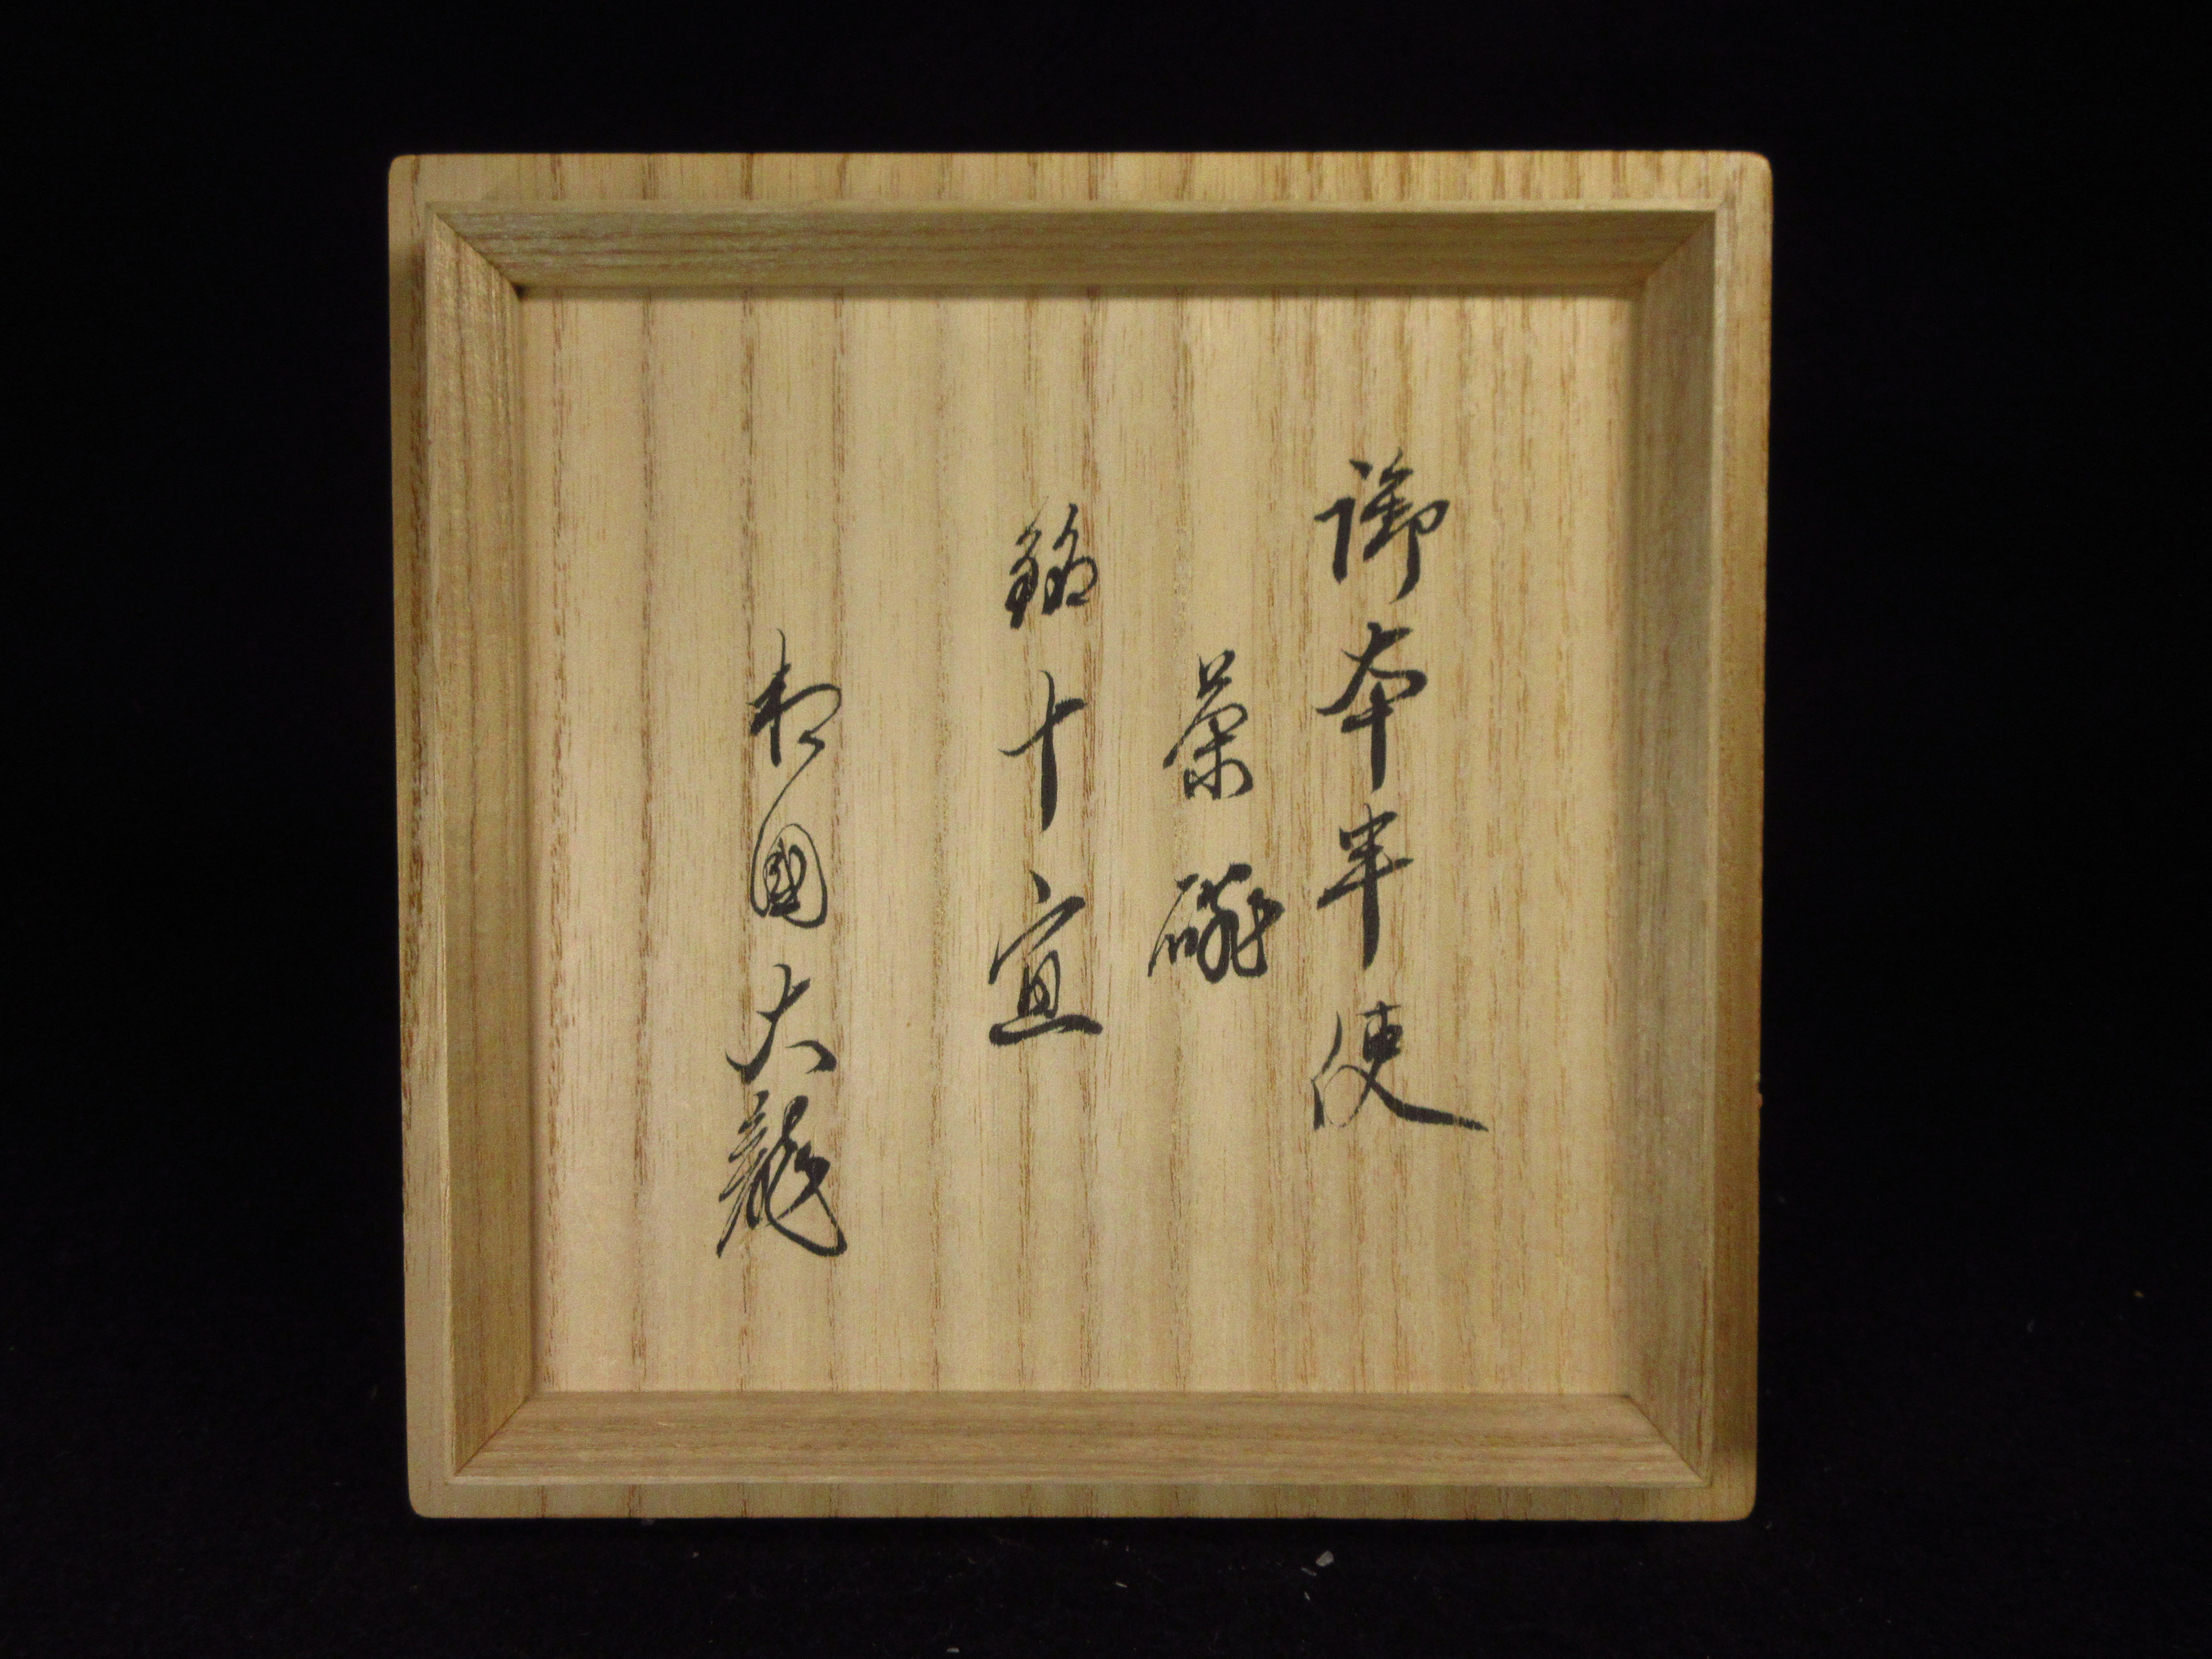 御本半使
茶碗
銘十宜
相國大龍